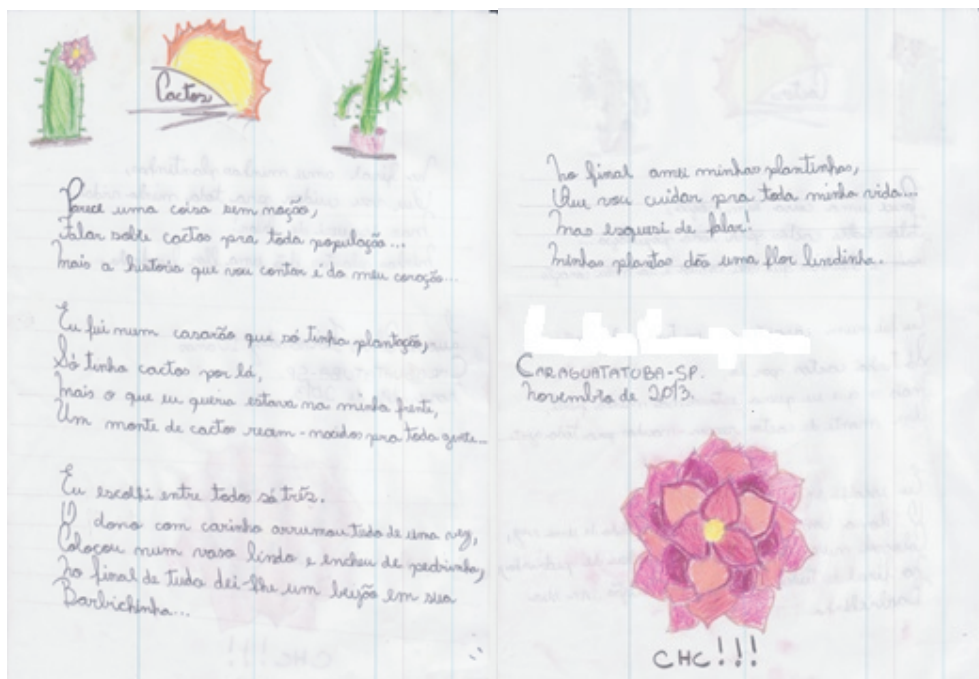 Cactos
Parece uma coisa sem noção,
Falar sobre cactos pra toda população...
Mais a história que vou contar é do meu coração...
Eu fui num casarão que só tinha plantação,
Só tinha cactos por lá,
mais o que eu queria estava na minha frente,
Um monte de cactos recem-nacidos pra toda gente...
Eu escolhi entre todos só três.
O dono com carinho arrumou tudo de uma vez,
Colocou num vaso lindo e encheu de pedrinha,
no final de tudo dei-lhe um beijão em sua
Barbichinha...
no final amei minhas plantinhas,
Que vou cuidar pra toda minha vida...
mas esqueci de falar!
minhas plantas dão uma flor lindinha.
CARAGUATATUBA-SP.
novembro de 2013.
CHC!!!